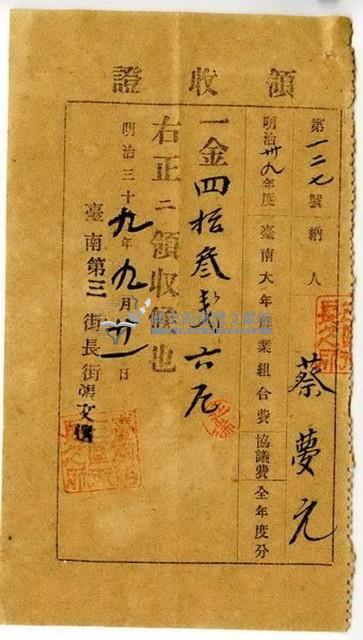 領收證
第一二七號納人 蔡夢元
明治卅九年度臺南大年業組合費協議費全年度分
一金四拾叁錢六厘
右正ニ領收也
明治三十九年九月 日
臺南第三街長街張文選